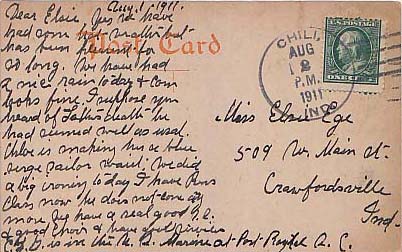 Aug. 1 1911.
Dear Elsie, Yes we have
had some hot weather but
has been pleasant for
so long. We have had
a nice rain today & corn
looks fine. I suppose you
heard of death he
had seemed well as usual.
Chloe is making her a blue
serge sailor waist. We did
a big ironing today I have
Class now he does not come any
more. We have a real good S.S.
& good choir & have
is in the U.S. Marine at Port Royal S.C.
Post Card
CHILI
AUG
2
P.M.
1911
IND.
ONE CENT
Miss Elsie Ege
509 W. Main St.
Crawfordsville
Ind.